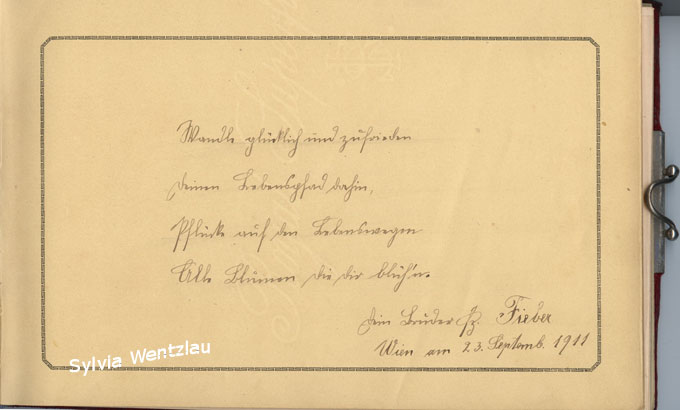 Wandle glücklich und zufrieden
deinen Lebenspfad dahin,
Pflücke auf den Lebenswegen
Alle Blumen die dir blüh'n.
Dein Bruder Fz. Fieber
Wien am 23. Septemb. 1911
Sylvia Wentzlau